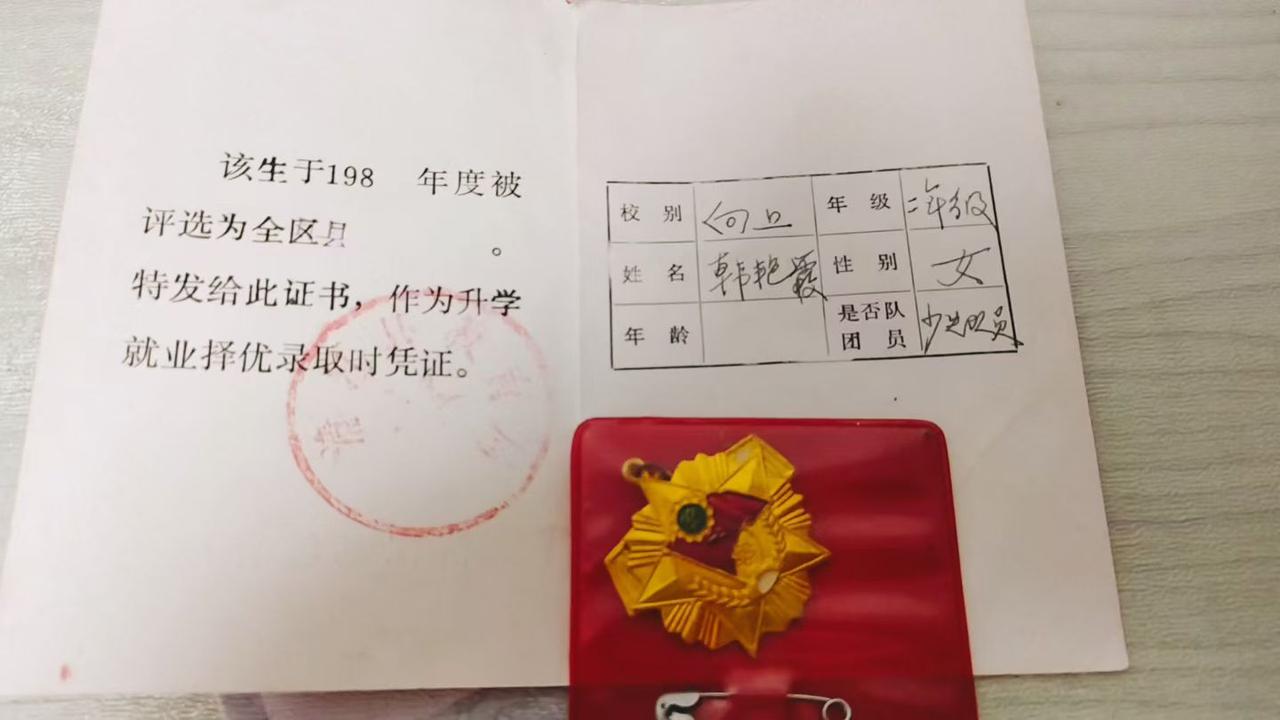 该生于198 年度被
评选为全区县 。
特发给此证书，作为升学
就业择优录取时凭证。
校别 向上 年级 二年级
姓名 韩艳霞 性别 女
年龄 是否队团员 少先队员